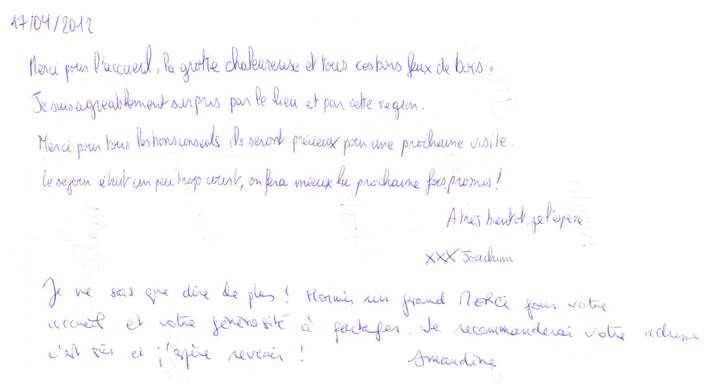 17/04/2012
Merci pour l'accueil, la grotte chaleureuse et tous ces bons feux de bois.
Je suis agreablement surpris par le lieu et par cette region.
Merci pour tous les bons conseils ils seront précieux pour une prochaine visite.
Le sejour était un peu trop court, on fera mieux la prochaine fois promis!
A très bientot, je l'espère
xxx Joachim
Je ne sais que dire de plus! Hormis un grand Merci pour votre
accueil et votre générosité à partager. Je recommanderai votre adresse
c'est sûr et j'espère revenir!
Amandine